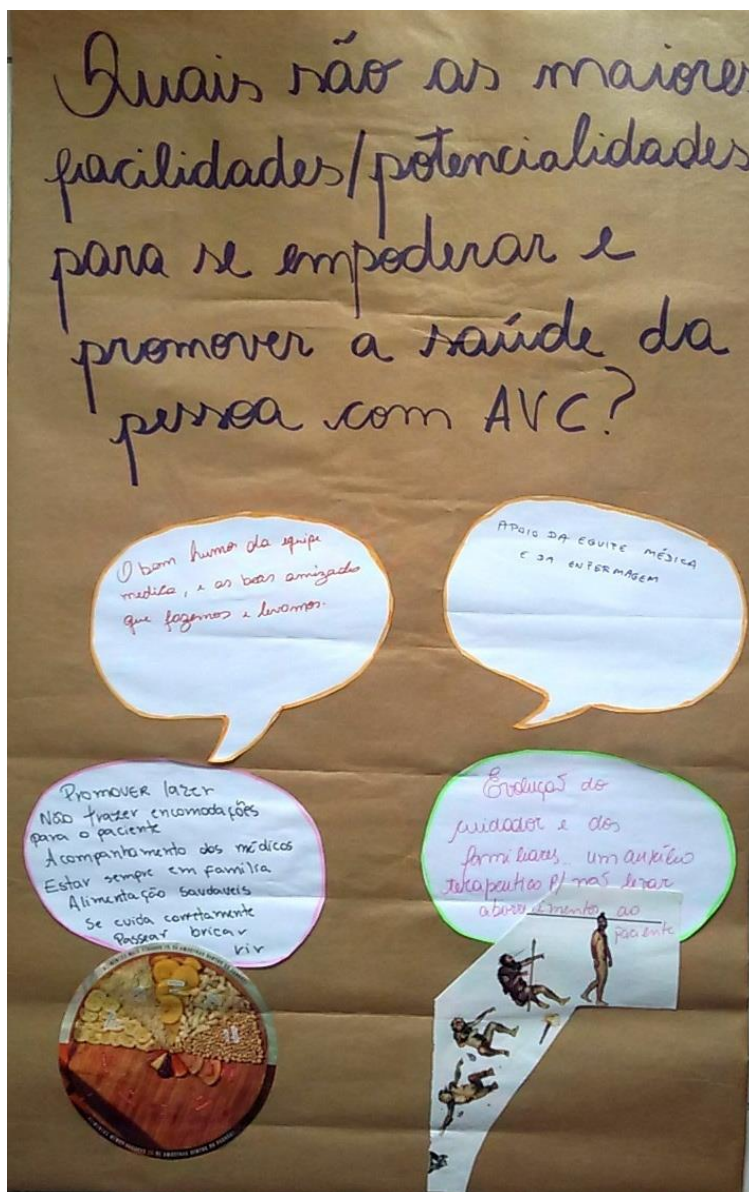 Quais são as maiores
facilidades/potencialidades
para se empoderar e
promover a saúde da
pessoa com AVC?
O bom humor da equipe
medica, e as boas amizades
que fazemos e levamos.
APOIO DA EQUIPE MÉDICA
E DA ENFERMAGEM
PROMOVER lazer
Não trazer encomodações
para o paciente
Acompanhamento dos médicos
Estar sempre em família
Alimentação saudaveis
Se cuida corretamente
Passear bricar
rir
Evolução do
cuidador e dos
familiares. um auxílio
terapeutico p/ não levar
ao
paciente